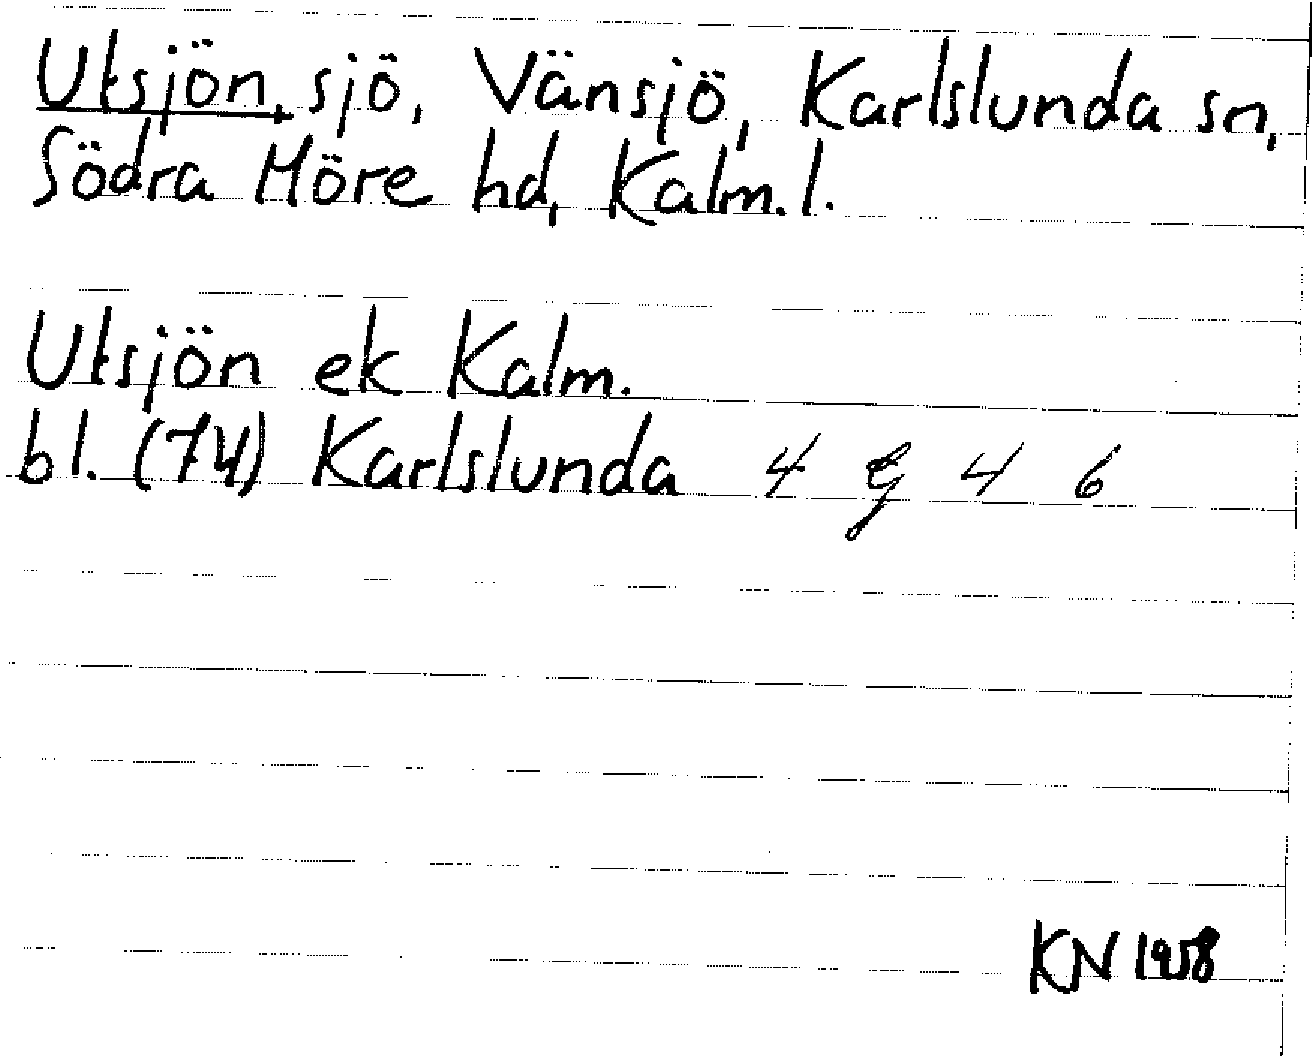 Utsjön, sjö, Vänsjö, Karlslunda sn,
Södra Möre hd, Kalm. l.
Utsjön ek Kalm.
bl. (74) Karlslunda 4 g 4 6
KN 1958